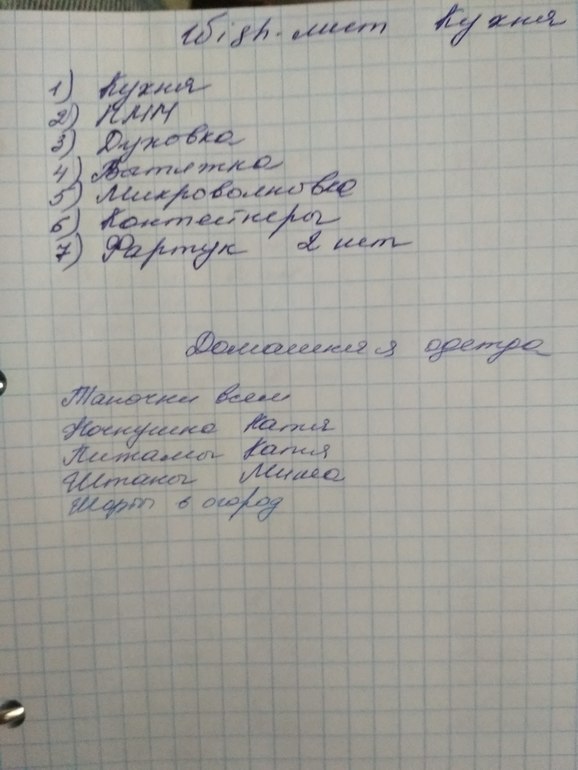 Wish-лист Кухня
1) Кухня
2) ПММ
3) Духовка
4) Вытяжка
5) Микроволновка
6) Контейнеры
7) Фартук 2 шт
Домашняя одежда
Тапочки всем
Ночнушка Катя
Пижамы Катя
Штаны Миша
Шорты в огород